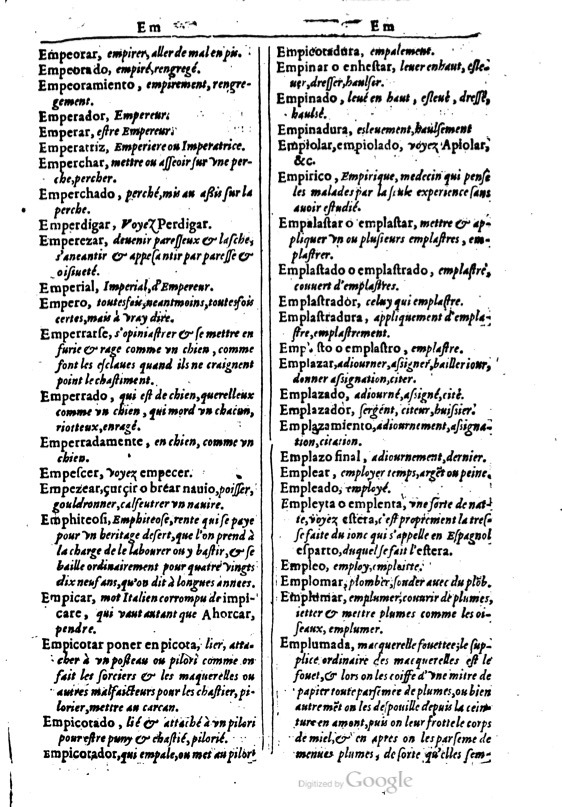 Em
Em
Empeorar, empirer, aller de mal en pis.
Empeorado, empiré, rengregé.
Empeoramiento, empirement, rengre-
gement.
Emperador, Empereur.
Emperar, estre Empereur.
Emperatriz, Emperiere ou Imperatrice.
Emperchar, mettre ou asseoir sur vne per-
che, percher.
Emperchado, perché, mis au assis sur la
perche.
Emperdigar, Voyez Perdigar.
Emperezar, deuenir paresseux & lasche,
s'aneantir & appesantir par paresse &
oisiueté.
Emperial, Imperial, d'Empereur.
Empero, toutesfois, neantmoins, toutesfois
certes, mais à vray dire.
Emperrarse, s'opiniastrer & se mettre en
furie & rage comme vn chien, comme
font les esclaues quand ils ne craignent
point le chastiment.
Emperrado, qui est de chien, querelleux
comme vn chien, qui mord vn chacun,
riotteux, enragé.
Emperradamente, en chien, comme vn
chien.
Empescer, voyez empecer.
Empezear, çurçir o brear nauio, poisser,
gouldronner, calfeutrer vn nauire.
Emphiteosi, Emphiteose, rente qui se paye
pour vn heritage desert, que l'on prend à
la charge de le labourer ou y bastir, & se
baille ordinairement pour quatre vingts
dix neuf ans, qu'on dit à longues années.
Empicar, mot Italien corrompu de impi-
care, qui vaut autant que Ahorcar,
pendre.
Empicotar poner en picota, lier, atta-
cher à vn posteau ou pilori comme on
fait les sorciers & les maquerelles ou
autres malfaicteurs pour les chastier, pi-
lorier, mettre au carcan.
Empicotado, lié & attaché à vn pilori
pour estre puny & chastié, pilorié.
Empicotador, qui empale, ou met au pilori
Empicotadura, empalement.
Empinar o enhestar, leuer en haut, esle-
uer, dresser, haulser.
Empinado, leué en haut, esleué, dressé,
haulsé.
Empinadura, esleuement, haulsement
Empiolar, empiolado, voyez Apiolar,
&c.
Empirico, Empirique, medecin qui pense
les malades par la seule experience sans
auoir estudié.
Empalastar o emplastar, mettre & ap-
pliquer vn ou plusieurs emplastres, em-
plastrer.
Emplastado o emplastrado, emplastré,
couuert d'emplastres.
Emplastrador, celuy qui emplastre.
Emplastradura, appliquement d'empla-
stre, emplastrement.
Emp. sto o emplastro, emplastre.
Emplazar, adiourner, assigner, bailler iour,
donner assignation, citer.
Emplazado, adiourné, assigné, cité.
Emplazador, sergent, citeur, huissier.
Emplazamiento, adiournement, assigna-
tion, citation.
Emplazo final, adiournement, dernier.
Emplear, employer temps, argẽt ou peine.
Empleado, employé.
Empleyta o emplenta, vne sorte de nat-
te, voyez estera, c'est proprement la tresse
se faite du ionc qui s'appelle en Espagnol
esparto, duquel se fait l'estera.
Empleo, employ, emploitte.
Emplomar, plomber, souder auec du plõb.
Emplumar, emplumer, couurir de plumes,
ietter & mettre plumes comme les oi-
seaux, emplumer.
Emplumada, maquerelle fouettee; le sup-
plice ordinaire des maquerelles est le
fouet, & lors on les coiffe d'vne mitre de
papier toute parsemée de plumes, ou bien
autremẽt on les despouille depuis la cein-
ture en amont, puis on leur frotte le corps
de miel, & en apres on les parseme de
menues plumes, de sorte qu'elles sem-
Digitized by Google